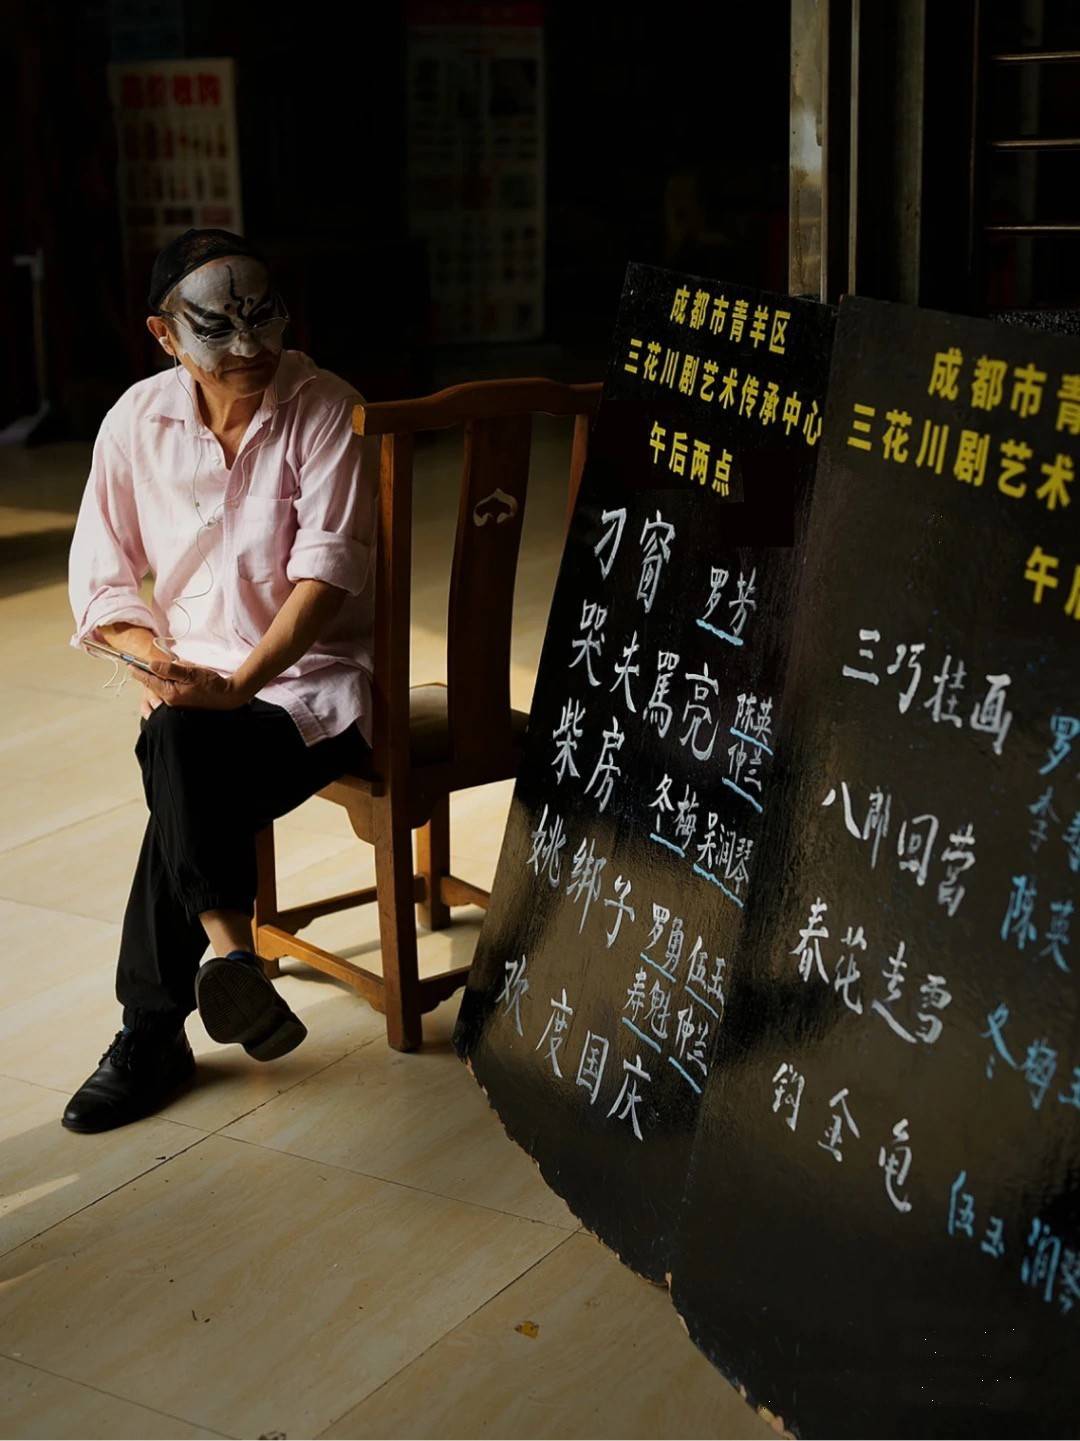 高价收购
成都市青羊区
三花川剧艺术传承中心
午后两点
刁窗 罗芳
哭夫骂亮 陈英 仲兰
柴房 冬梅 吴润琴
姚绑子 罗勇 伍玉 秦魁 仲兰
欢度国庆
成都市青
三花川剧艺术
午后
三巧挂画 罗
李
八郎回营 陈英
春花走雪 冬梅 玉
钓金龟 伍玉 润琴